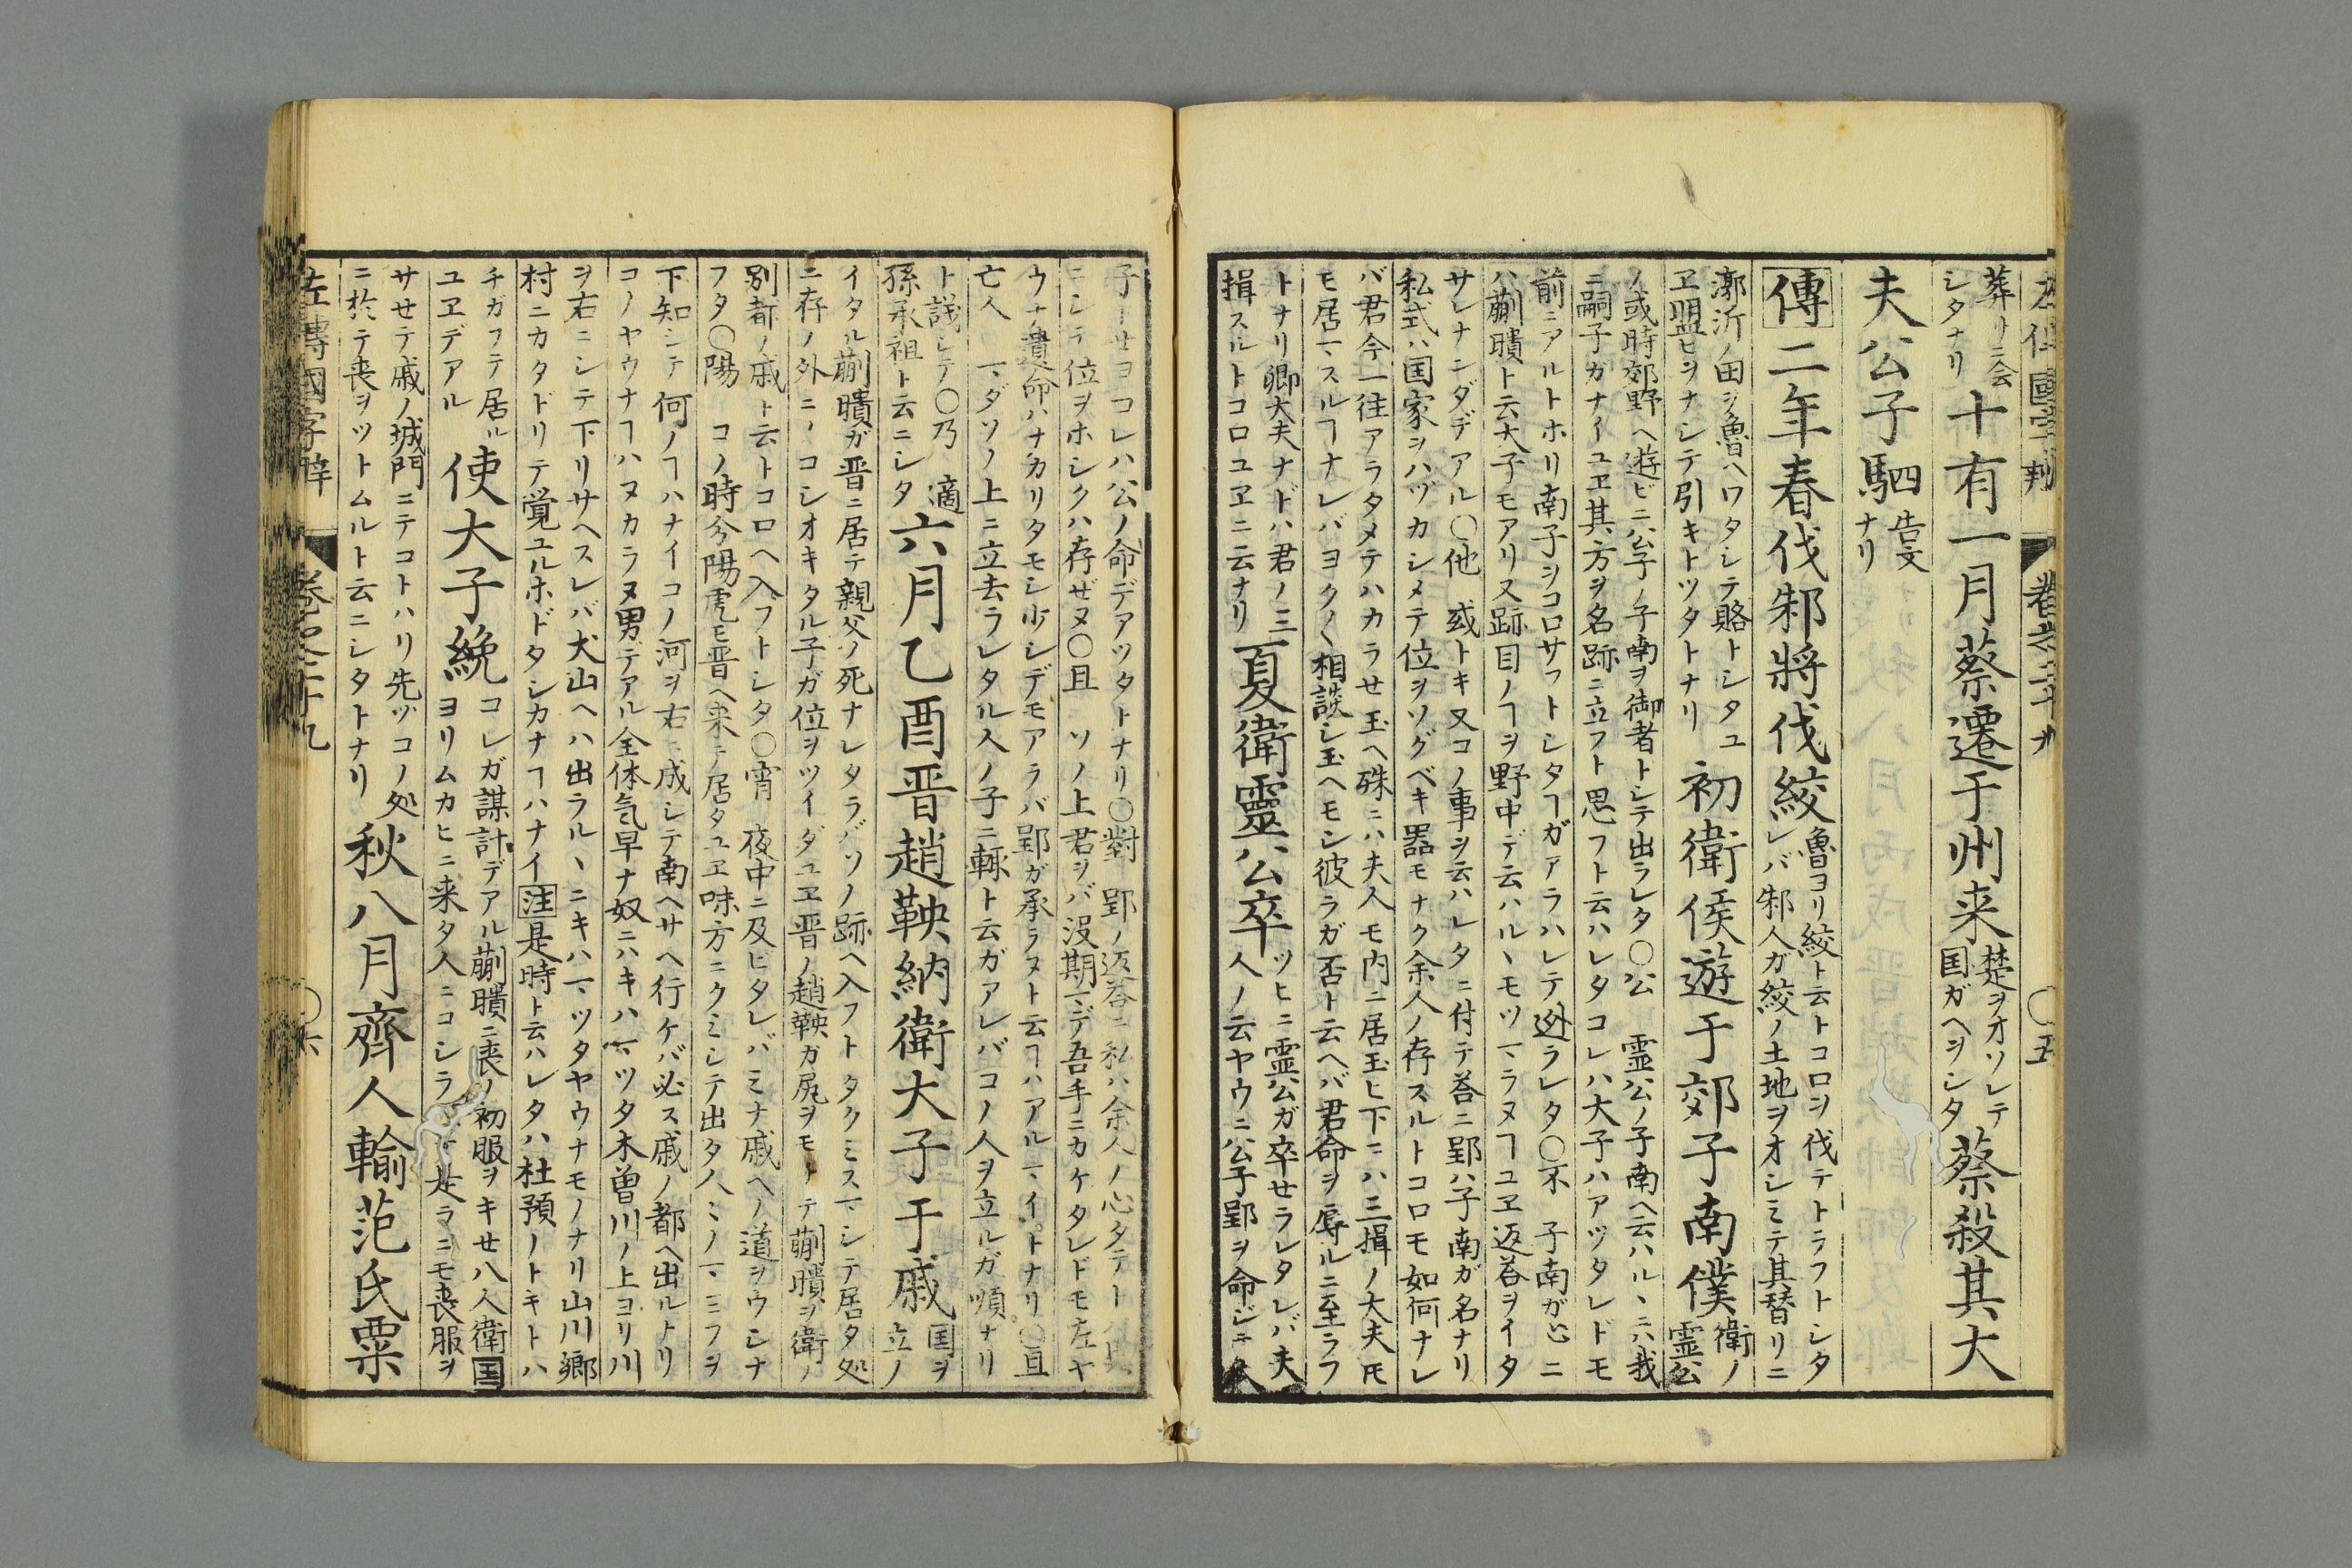 左傳國字辯 卷之二十九 ○五
葬リニ会
シタナリ
十有一月蔡遷于州来
楚ヲオソレテ
国ガヘヲシタ
蔡殺其大
夫公子駟
告文
ナリ
傳二年春伐邾將伐絞
魯ヨリ絞ト云トコロヲ伐テトラフトシタ
レバ邾人ガ絞ノ土地ヲオシミテ其替リニ
漷沂ノ田ヲ魯ヘワタシテ賂トシタユ
ヱ盟ヒヲナシテ引キトツタトナリ
初衛侯遊于郊子南僕
衛ノ
霊公
ノ或時郊野ヘ遊ビニ公子ノ子南ヲ御者トシテ出ラレタ○公 霊公ノ子南ヘ云ハルヽニハ我
ニ嗣子ガナイユヱ其方ヲ名跡ニ立フト思フト云ハレタコレハ大子ハアヅタレドモ
前ニアルトホリ南子ヲコロサフトシタヿガアラハレテ迯ラレタ○不 子南ガ心ニ
ハ蒯聵ト云大子モアリ又跡目ノヿヲ野中デ云ハルヽモツマラヌヿユヱ返荅ヲイタ
サレナンダデアル○他 或トキ又コノ事ヲ云ハレタニ付テ荅ニ郢ハ子南ガ名ナリ
私式ハ国家ヲハヅカシメテ位ヲツグベキ器モナク余人ノ存スルトコロモ如何ナレ
バ君今一往アラタメテハカラせ玉ヘ殊ニハ夫人モ内ニ居玉ヒ下ニハ三揖ノ大夫𪜈
モ居マスルヿナレバヨク〱相談シ玉ヘモシ彼ラガ否ト云ヘバ君命ヲ辱ルニ至ラフ
トナリ卿大夫ナドハ君ノ三
揖スルトコロユヱニ云ナリ
夏衛靈公卒
ツヒニ霊公ガ卒せラレタレバ夫
人ノ云ヤウニ公子郢ヲ命ジテ大
子トせヨコレハ公ノ命デアツタトナリ○對 郢ノ返荅ニ私ハ余人ノ心タテトハ異
ニシテ位ヲホシクハ存ぜヌ○且 ソノ上君ヲバ没期マデ吾手ニカケタレドモ左ヤ
ウナ遺命ハナカリタモシ少シデモアラバ郢ガ承ラヌト云ヿハアルマイトナリ○且
亡人 マダソノ上ニ立去ラレタル人ノ子ニ輒ト云ガアレバコノ人ヲ立ルガ順ナリ
ト説シテ○乃 適
孫承祖ト云ニシタ
六月乙酉晋趙鞅納衛大子于戚
国ヲ
立ノ
イタル蒯聵ガ晋ニ居テ親父ノ死ナレタラバソノ跡ヘ入フトタクミスマシテ居タ処
ニ存ノ外ニノコシオキタル子ガ位ヲツイダユヱ晋ノ趙鞅ガ尻ヲモツテ蒯聵ヲ衛ノ
別都ノ戚ト云トコロヘ入フトシタ○宵 夜中ニ及ビタレバミナ戚ヘノ道ヲウシナ
フタ○陽 コノ時分陽虎モ晋ヘ来テ居タユヱ味方ニクミシテ出タ人ミノマヽニフヲ
下知シテ何ノヿハナイコノ河ヲ右ニ成シテ南ヘサヘ行ケバ必ス戚ノ都ヘ出ルトリ
コノヤウナヿハヌカラヌ男デアル全体気早ナ奴ニハキハマツタ木曽川ノ上ヨリ川
ヲ右ニシテ下リサヘスレバ犬山ヘハ出ラルヽニキハマツタヤウナモノナリ山川郷
村ニカタドリテ覚ユルホドタシカナヿハナイ注是時ト云ハレタハ杜預ノトキトハ
チガフテ居ル
ユヱデアル
使大子絻
コレガ謀計デアル蒯聵ニ喪ノ初服ヲキせ八人衛国
ヨリムカヒニ来タ人ニコシラ
ラニモ喪服ヲ
サせテ戚ノ城門ニテコトハリ先ヅコノ処
ニ於テ喪ヲツトムルト云ニシタトナリ
秋八月齊人輸范氏粟
左傳國字辯 卷之二十九 ○六